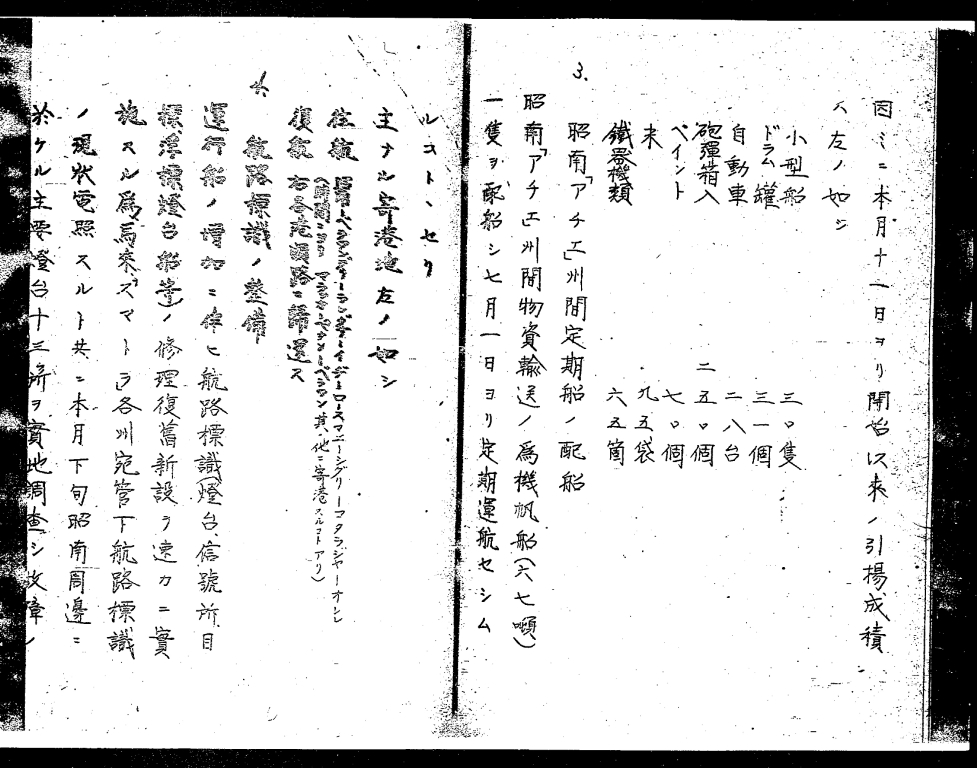 因ミニ本月十一日ヨリ開始以来ノ引揚成積
ハ左ノ如シ
小型船 三〇隻
ドラム罐 三一個
自動車 二八台
砲彈箱入 二五〇個
ペイント 七〇個
末 九五袋
鐵器機類 六五箇
3.
昭南「アチエ」州間定期船ノ配船
昭南「アチエ」州間物資輸送ノ爲機帆船(六七噸)
一隻ヲ配船シ七月一日ヨリ定期運航セシム
ルコトヽセリ
主ナル寄港地左ノ如シ
往航
復航 右各港順路ニ歸還ス
其ノ他ニ寄港スルコトアリ)
4
航路標識ノ整備
運行船ノ増加ニ伴ヒ航路標識(燈台、信號所目
標浮標燈台船等)ノ修理復舊新設ヲ速カニ實
施スル爲馬來「スマトラ」各州宛管下航路標識
ノ現状電照スルト共ニ本月下旬昭南周邊ニ
於ケル主要燈台十三ヶ所ヲ實地調査シ故障ノ